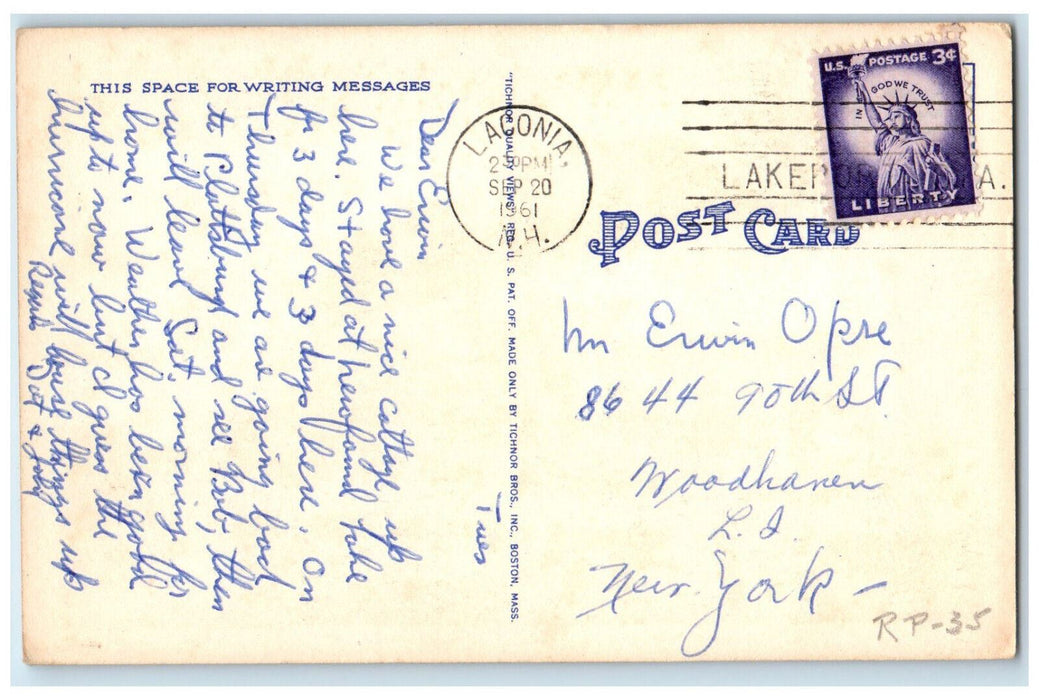 THIS SPACE FOR WRITING MESSAGES
Tues
Dear Erwin
We have a nice cottage up
here. Stayed at Newfound Lake
for 3 days & 3 days here. On
Thursday we are going back
to Plattsburg and see Bob, then
will leave Sat. morning for
home. Weather has been good
up to now but I guess the
hurricane will louse things up
Regards
Dot &
"TICHNOR QUALITY VIEWS," REG. U. S. PAT. OFF. MADE ONLY BY TICHNOR BROS., INC., BOSTON, MASS.
LACONIA,
2 30 PM
SEP 20
1961
N.H.
LAKEPO A.
U.S. POSTAGE 3¢
IN GOD WE TRUST
LIBERTY
POST CARD
Mr Erwin Opre
8644 90th St.
Woodhaven
L.I.
New York -
RP-35